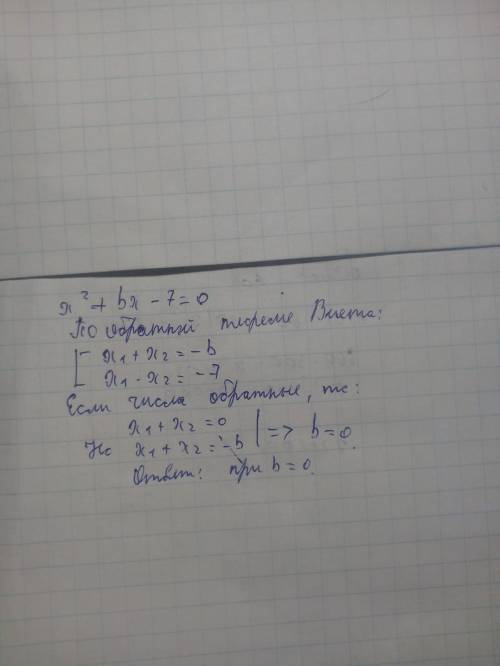 x² + bx - 7 = 0
По обратный теореме Виета:
[ x₁ + x₂ = -b
x₁ · x₂ = -7
Если числа обратные, то:
x₁ + x₂ = 0
Но x₁ + x₂ = -b | => b = 0.
Ответ: при b = 0.